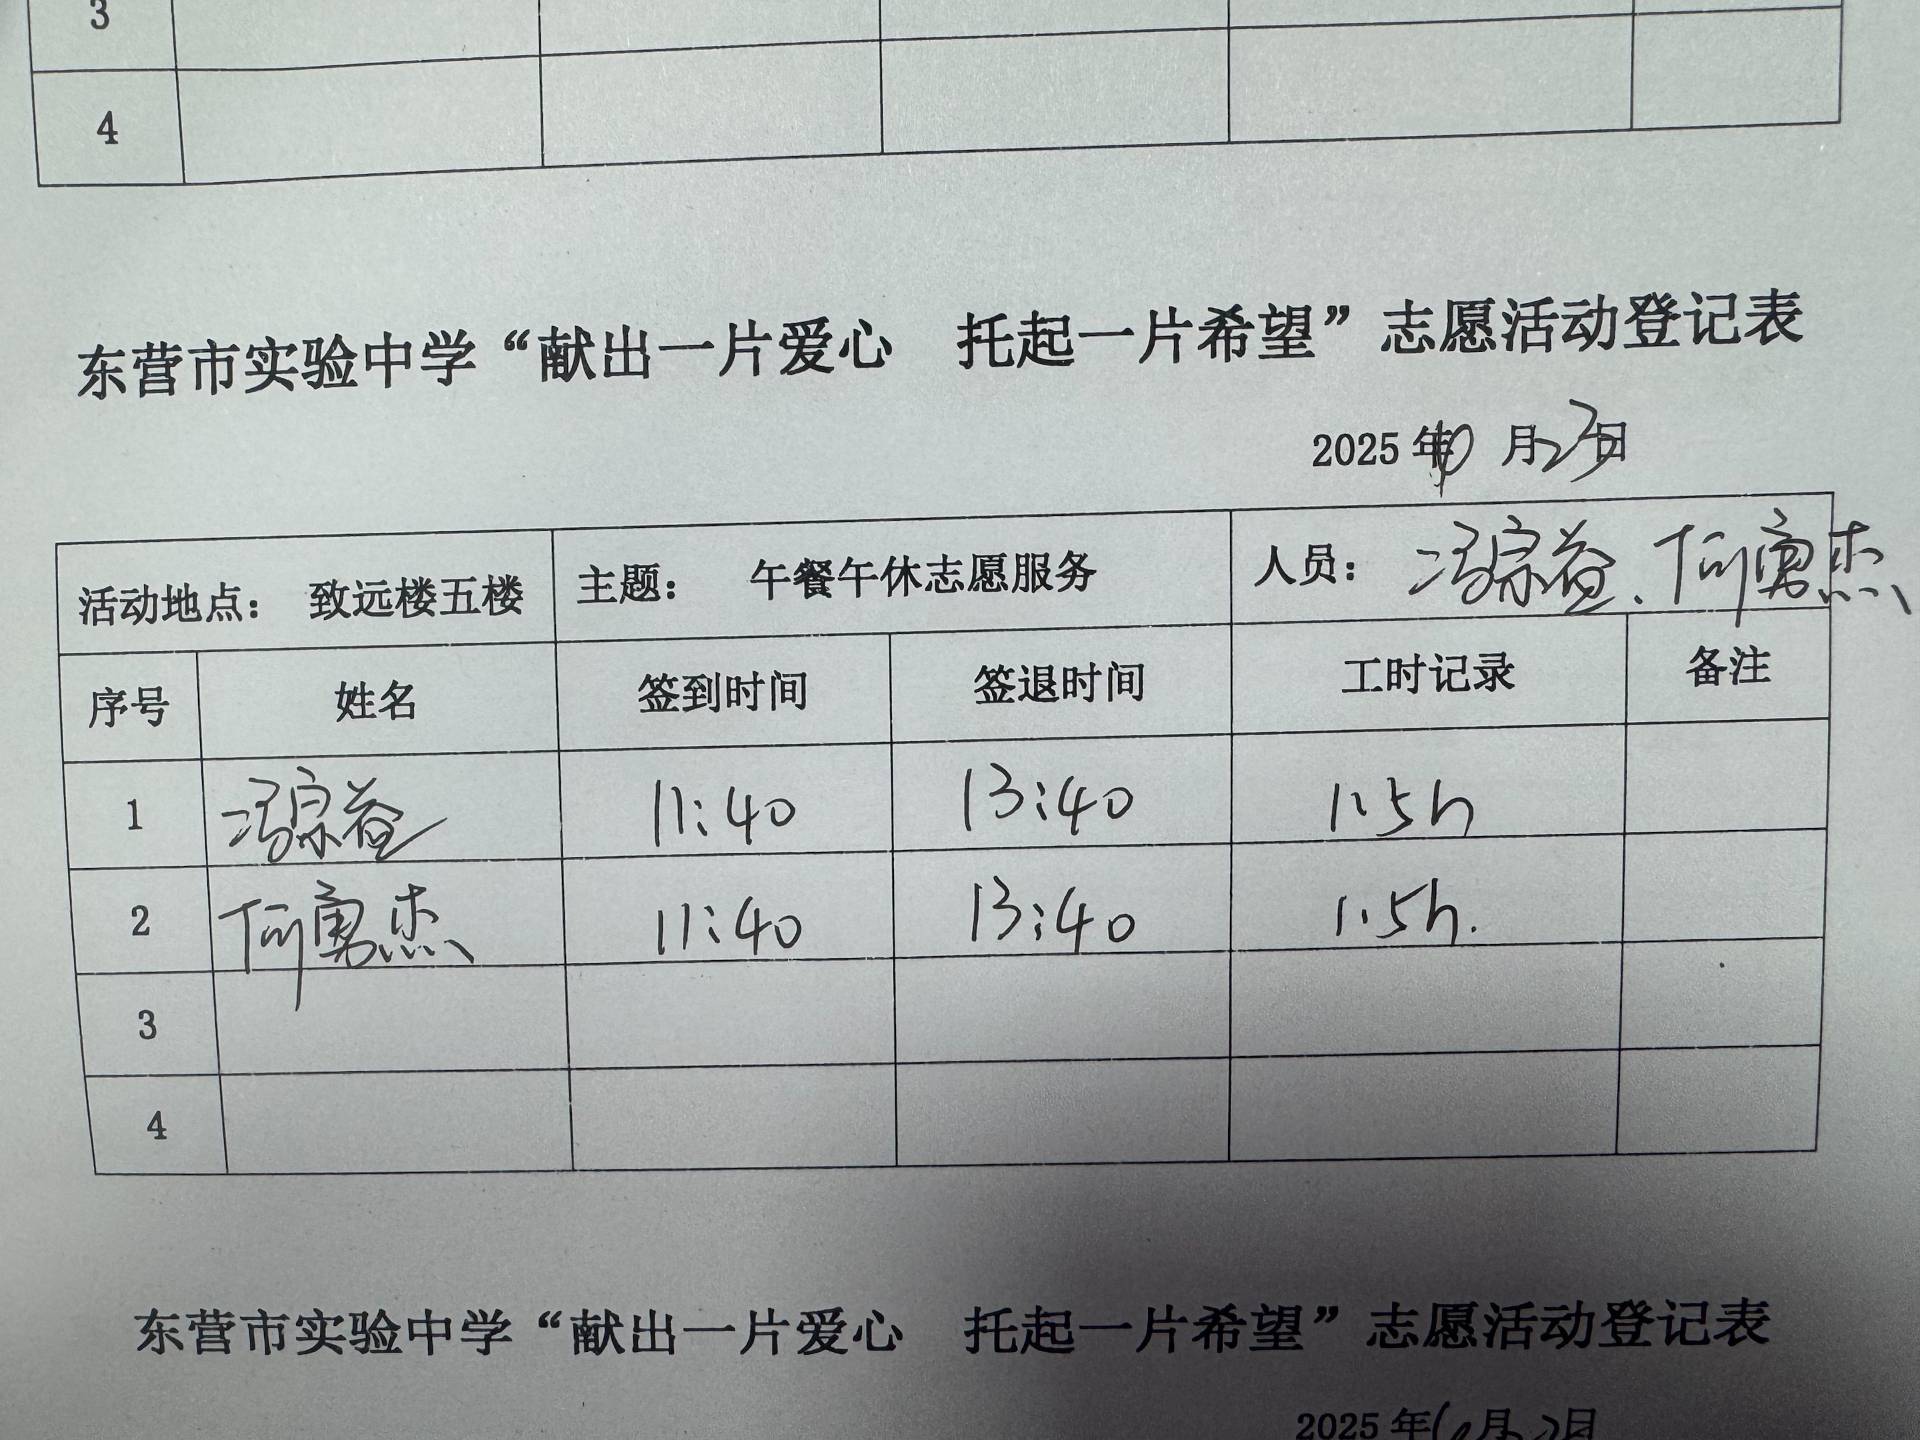 3
4
东营市实验中学“献出一片爱心 托起一片希望”志愿活动登记表
2025年10月23日
活动地点: 致远楼五楼 主题: 午餐午休志愿服务 人员: 冯宗益、何勇杰
序号 姓名 签到时间 签退时间 工时记录 备注
1 冯宗益 11:40 13:40 1.5h
2 何勇杰 11:40 13:40 1.5h.
3
4
东营市实验中学“献出一片爱心 托起一片希望”志愿活动登记表
2025年 月 日